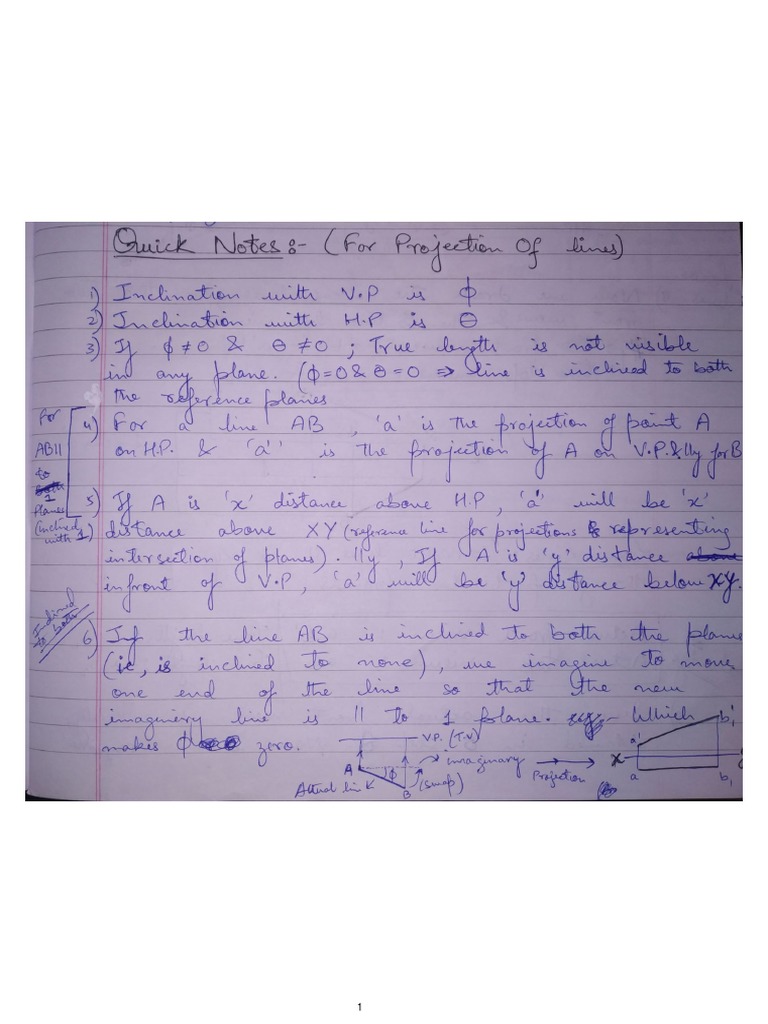 Quick Notes:- (For Projection Of lines)
1) Inclination with V.P is ϕ
2) Inclination with H.P is θ
3) If ϕ ≠ 0 & θ ≠ 0 ; True length is not visible
in any plane. (ϕ=0 & θ=0 ⇒ line is inclined to both
the reference planes
For
AB ||
to
1
planes
(inclined
with 1)
4) For a line AB, 'a' is the projection of point A
on H.P. & 'a'' is the projection of A on V.P. & lly for B
5) If A is 'x' distance above H.P, 'a'' will be 'x'
distance above XY (reference line for projections & representing
intersection of planes). lly, If A is 'y' distance
infront of V.P, 'a' will be 'y' distance below XY.
Inclined
to both
6) If the line AB is inclined to both the plane
(ie, is inclined to none), we imagine to move
one end of the line so that the new
imaginery line is || to 1 plane. Which
makes ϕ zero.
V.P. (T.V)
A
ϕ
B
Actual line
imaginary
(swap)
Projection
X
a'
b'1
a
b1
1